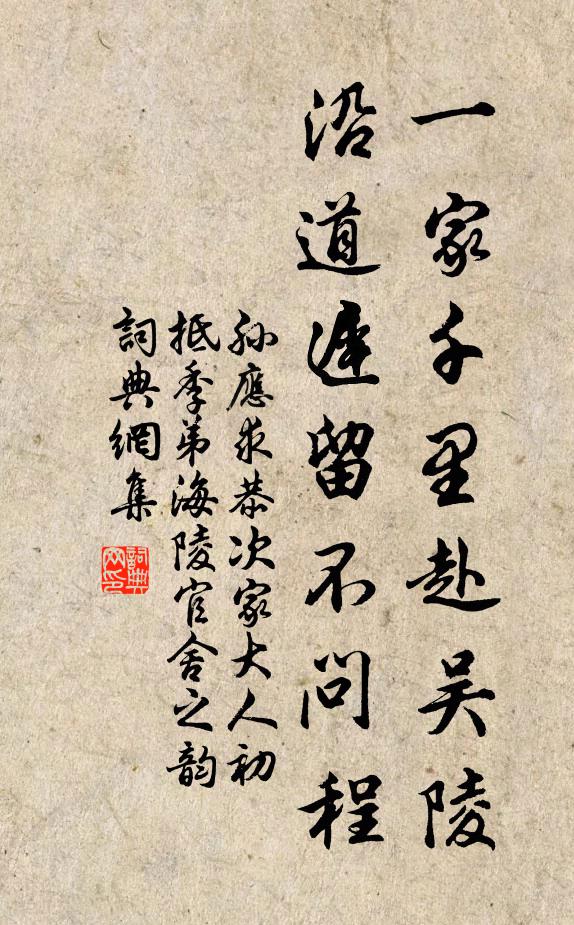 一家千里赴吴陵
沿道遲留不問程
孙應求恭次家大人初
抵季弟海陵官舍之韵
詞典網集
詞典网印